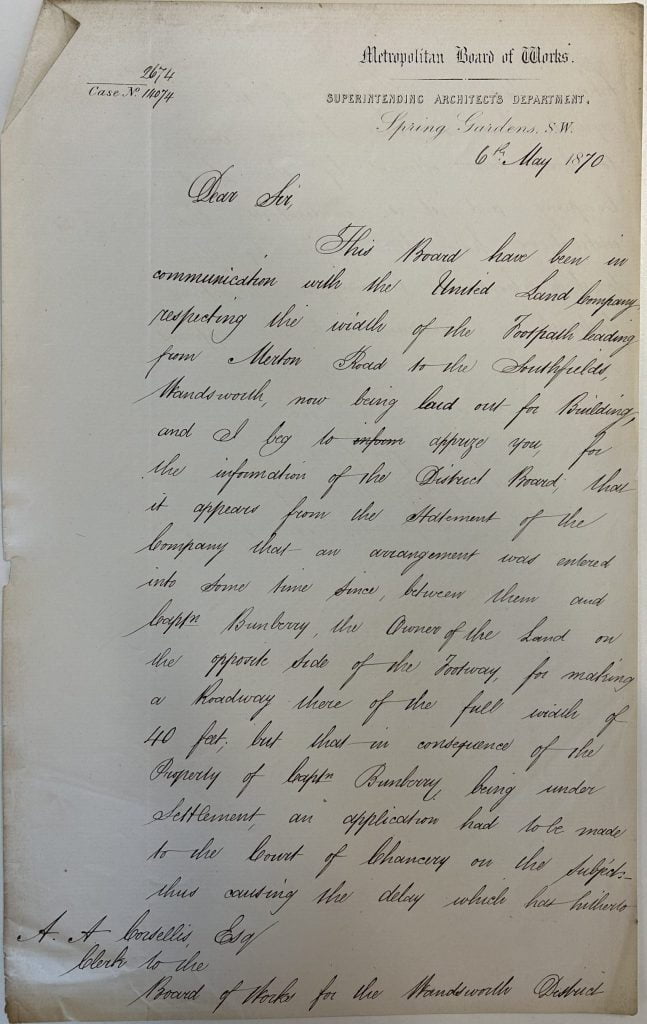 2674
Case No. 14074
Metropolitan Board of Works.
SUPERINTENDING ARCHITECT'S DEPARTMENT,
Spring Gardens, S.W.
6th May 1870
Dear Sir,
This Board have been in
communication with the United Land Company,
respecting the width of the Footpath leading
from Merton Road to the Southfields,
Wandsworth, now being laid out for Building,
and I beg to inform apprize you, for
the information of the District Board, that
it appears from the Statement of the
Company that an arrangement was entered
into some time since, between them and
Captn Bunberry, the Owner of the Land on
the opposite side of the Footway, for making
a Roadway there of the full width of
40 feet; but that in consequence of the
Property of Captn Bunberry, being under
Settlement, an application had to be made
to the Court of Chancery on the subject-
thus causing the delay which has hitherto
A. A Corsellis, Esq
Clerk to the
Board of Works for the Wandsworth District